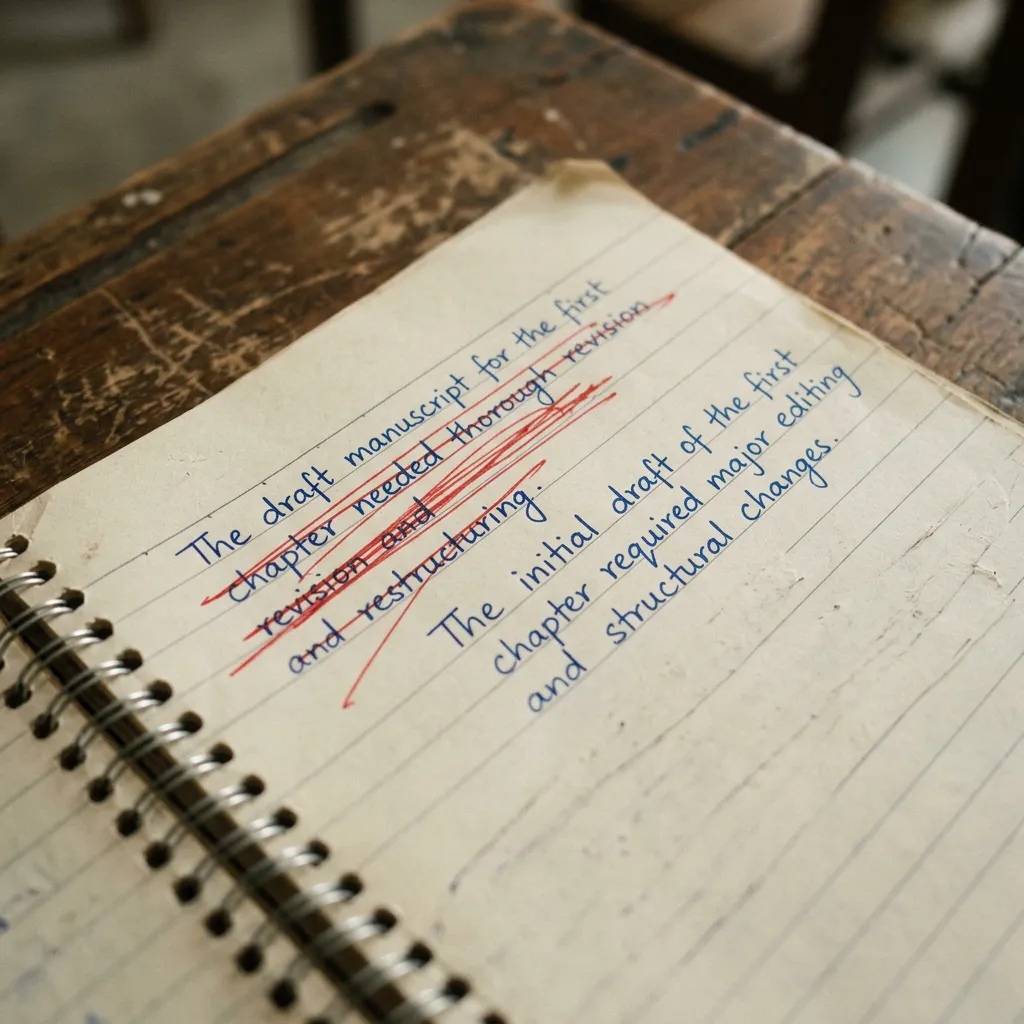 The draft manuscript for the first
chapter needed thorough revision
revision and
and restructuring.
The initial draft of the first
chapter required major editing
and structural changes.